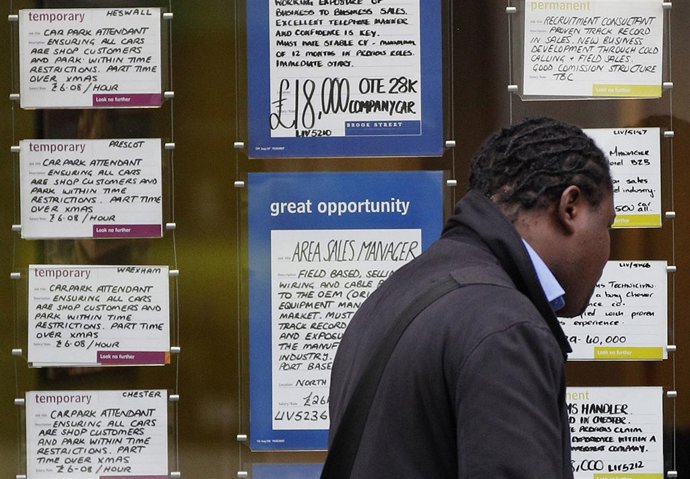 temporary HESWALL
CAR PARK ATTENDANT
ENSURING ALL CARS
ARE SHOP CUSTOMERS
AND PARK WITHIN TIME
RESTRICTIONS. PART TIME
OVER XMAS
£6.08/HOUR
Look no further
temporary PRESCOT
CAR PARK ATTENDANT
ENSURING ALL CARS
ARE SHOP CUSTOMERS AND
PARK WITHIN TIME
RESTRICTIONS. PART
£6.08/HOUR
temporary WREXHAM
CAR PARK ATTENDANT
ENSURING ALL CARS
ARE SHOP CUSTOMERS AND
PARK WITHIN TIME
RESTRICTIONS. PART TIME
OVER XMAS
£6.08/HOUR
Look no further
temporary CHESTER
CARPARK ATTENDANT
ENSURING ALL CARS
ARE SHOP CUSTOMERS
AND PARK WITHIN TIME
RESTRICTIONS. PART TIME
OVER XMAS
£6.08/HOUR
BUSINESS TO BUSINESS SALES.
EXCELLENT TELEPHONE MANNER
AND CONFIDENCE IS KEY.
MUST HAVE STABLE CV - MINIMUM
OF 12 MONTHS IN PREVIOUS ROLES.
IMMEDIATE START.
£18,000 OTE 28K
COMPANY CAR
LIV5210
BROOK STREET
great opportunity
AREA SALES MANAGER
FIELD BASED,
WIRING AND CABLE
TO THE OEM
EQUIPMENT
MARKET. MUST
TRACK RECORD
AND
THE
INDUSTRY.
PORT
NORTH
£26
LIV5236
permanent
RECRUITMENT CONSULTANT
PROVEN TRACK RECORD
IN SALES. NEW BUSINESS
DEVELOPMENT THROUGH COLD
CALLING & FIELD SALES.
GOOD COMISSION STRUCTURE
TBC
LIV5167
MANAGER
B2B
sales
industry.
experience.
40,000
HANDLER
IN CHESTER.
CLAIM
WITHIN A
COMPANY.
8,000 LIV5212